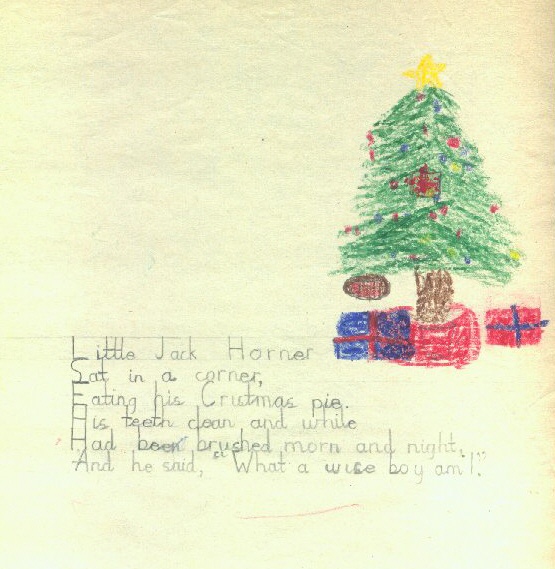 Little Jack Horner
Sat in a corner,
Eating his Cristmas pie.
His teeth clean and while
Had been brushed morn and night,
And he said, "What a wise boy am I."